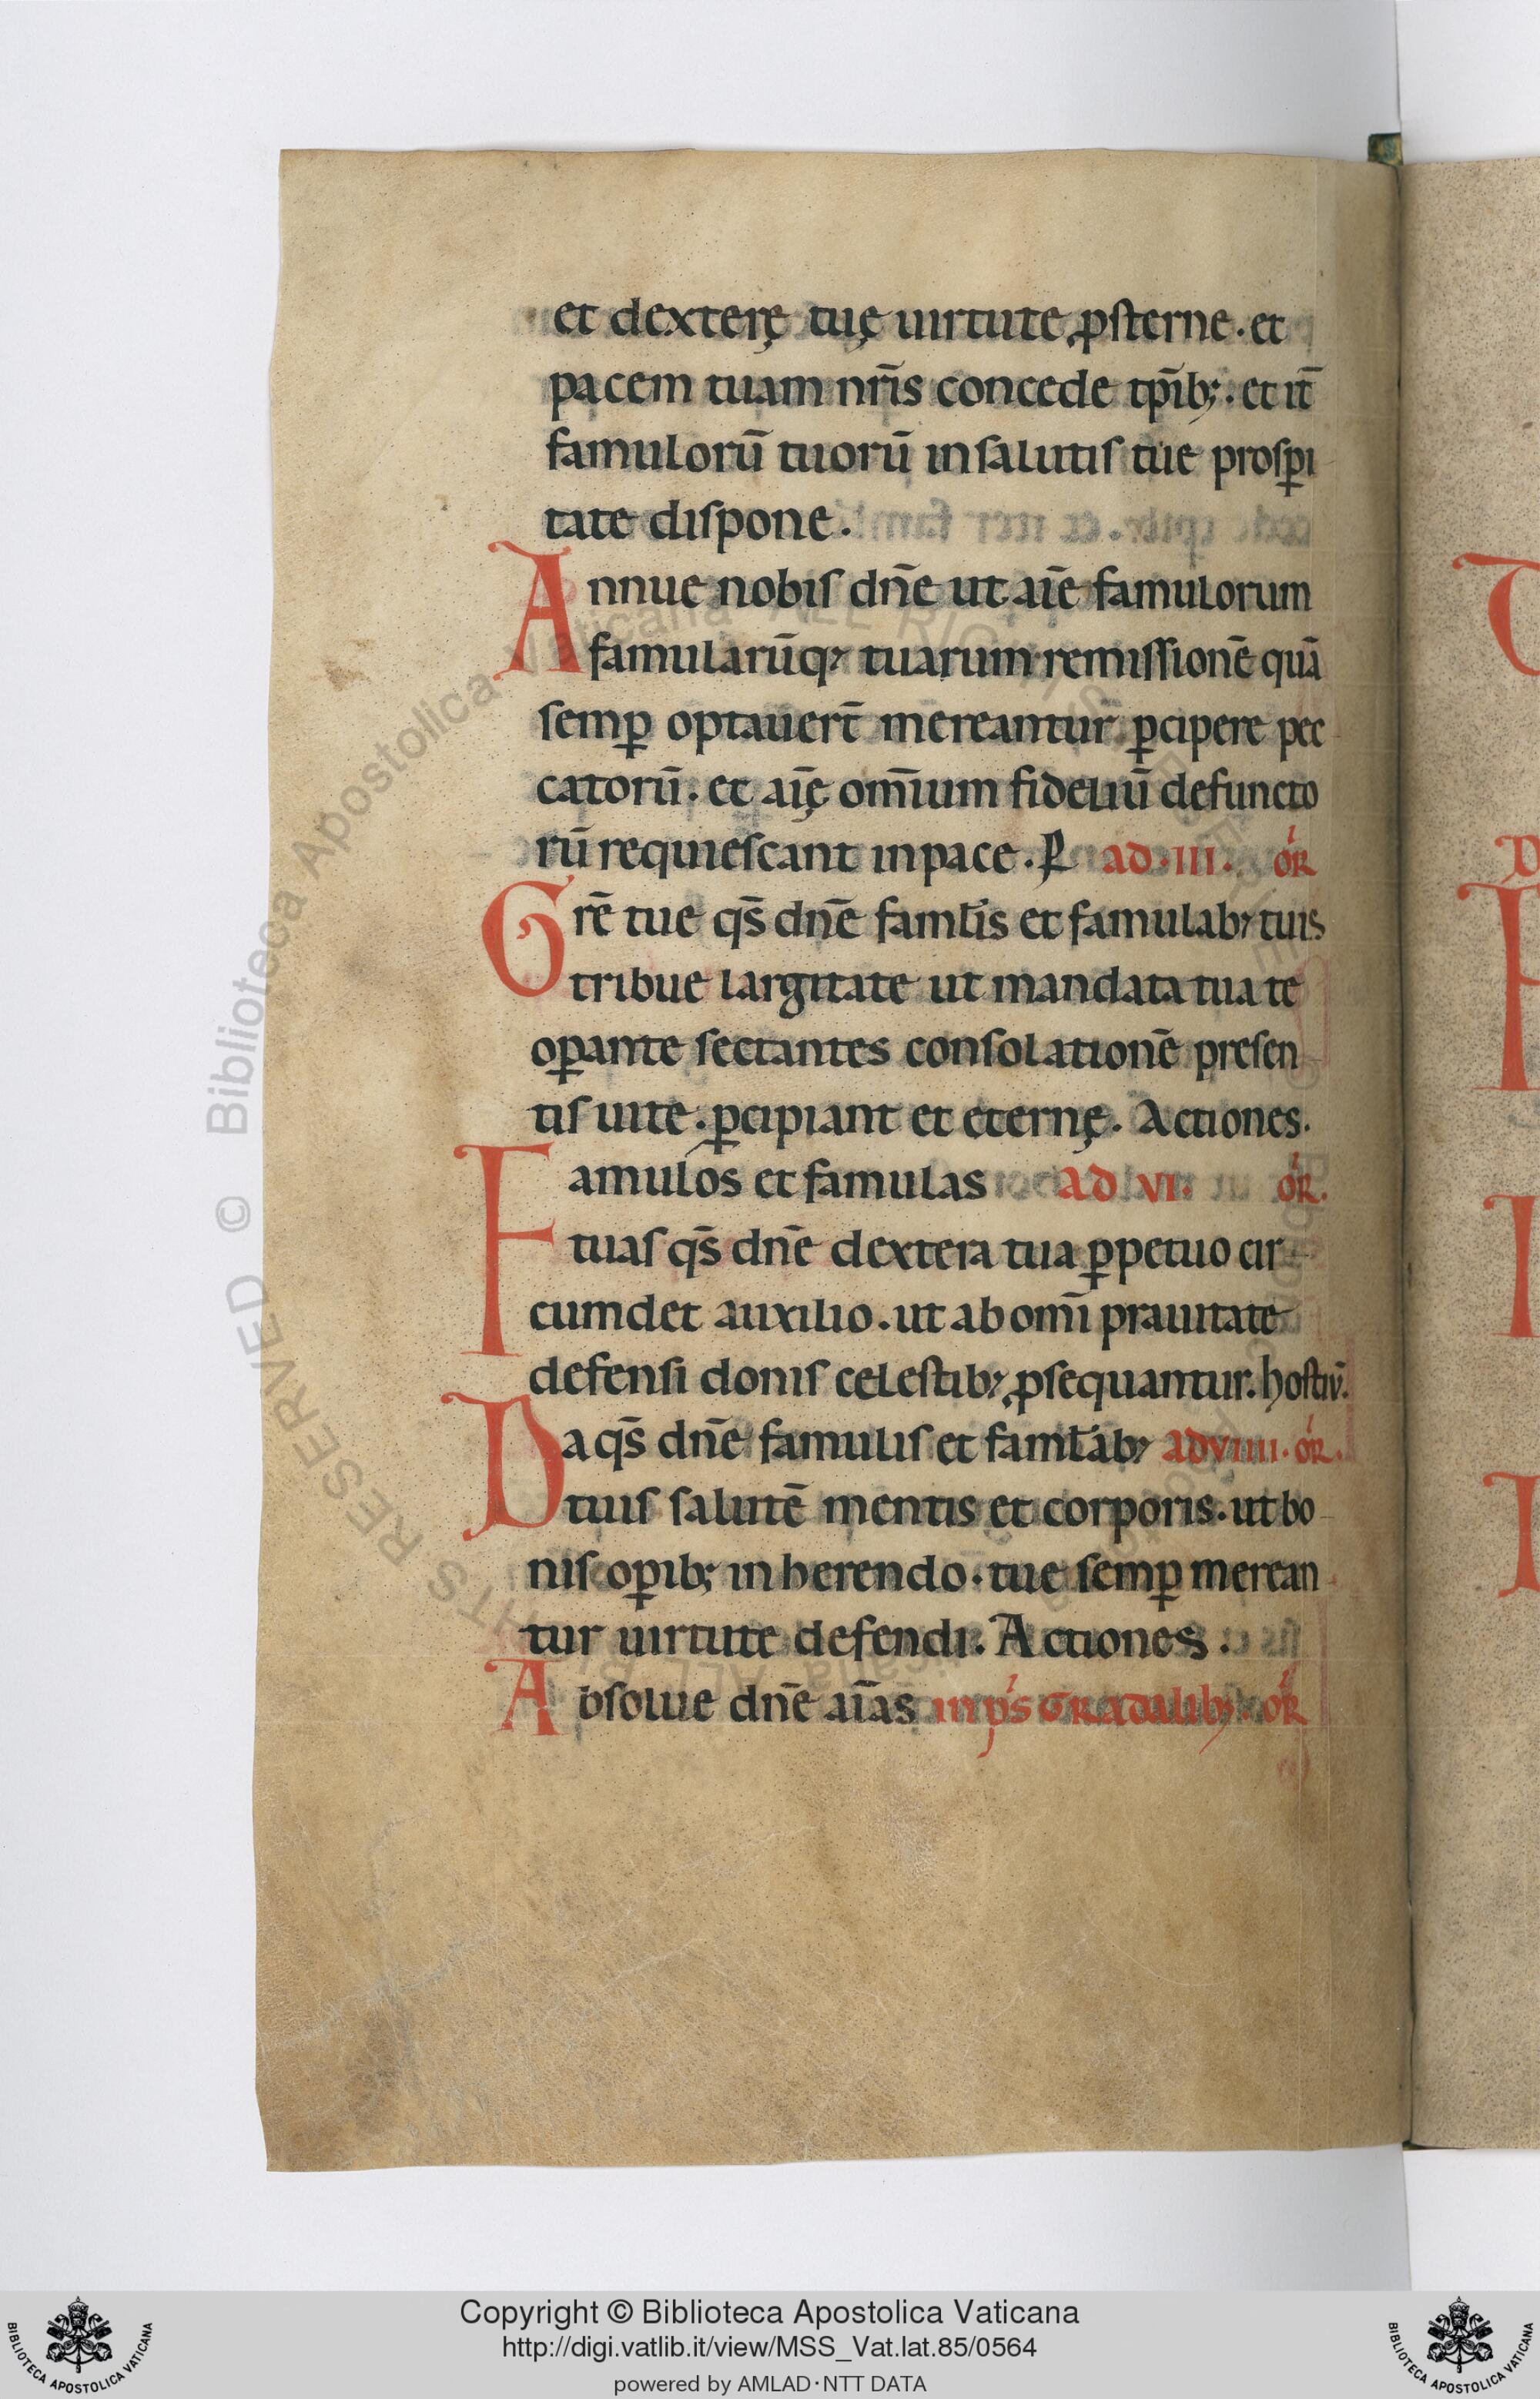 et dexterę tuę uirtute ꝓsterne. et
pacem tuam nr̄is concede tp̄ib;. et it̄
famulorū tuorū in salutis tue prosꝑi
tate dispone.
Annue nobis dn̄e ut aīe famulorum
famularūq; tuarum remissionē quā
semꝑ optauert̄ mereantur ꝑcipere pec
catorū. et aīę om̄ium fideliū defuncto
rū requiescant in pace. P ad. III. or̄
Grē tue qs̄ dn̄e faml̄is et famulab; tuis
tribue largitate ut mandata tua te
oꝑante sectantes consolationē presen
tis uite. ꝑcipiant et eternę. Actiones.
Famulos et famulas ad VI. or̄.
tuas qs̄ dn̄e dextera tua ꝑpetuo cir
cumdet auxilio. ut ab om̄i prauitate
defensi donis celestib; ꝓsequantur. hostiū.
Da qs̄ dn̄e famulis et faml̄ab; ad VIIII. or̄.
tuis salutē mentis et corporis. ut bo
nis oꝑib; in herendo. tue semꝑ merean
tur uirtute defendi. Actiones.
Absolue dn̄e aīas in ps̄ Gradalib; or̄
© Biblioteca Apostolica Vaticana ALL RIGHTS RESERVED
Copyright © Biblioteca Apostolica Vaticana
http://digi.vatlib.it/view/MSS_Vat.lat.85/0564
powered by AMLAD·NTT DATA
BIBLIOTECA APOSTOLICA VATICANA
BIBLIOTECA APOSTOLICA VATICANA